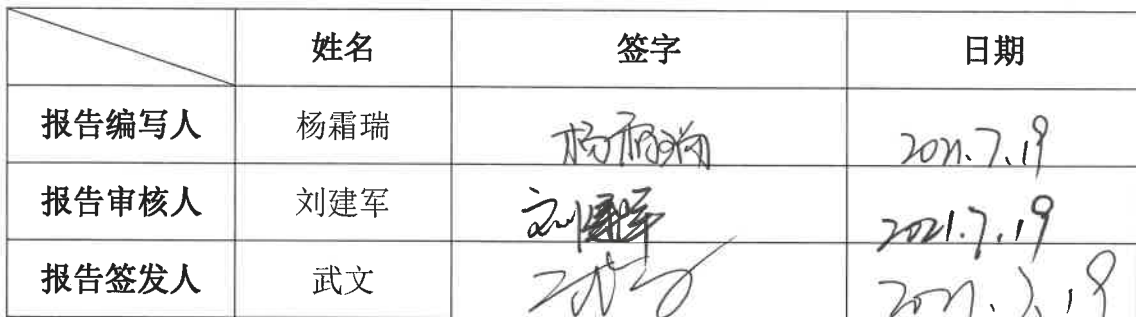 姓名 签字 日期
报告编写人 杨霜瑞 杨霜瑞 2021.7.19
报告审核人 刘建军 刘建军 2021.7.19
报告签发人 武文 武文 2021.7.19